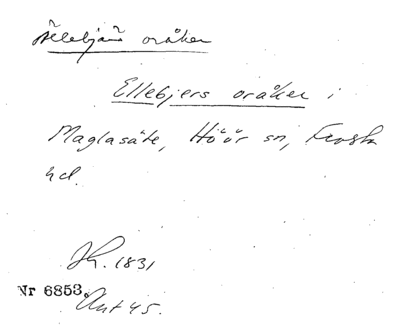 oråker
Ellebjers oråker i
Maglasäte, Höör sn, Frosta
hd.
1831
Nr 6853.
Ant 45.